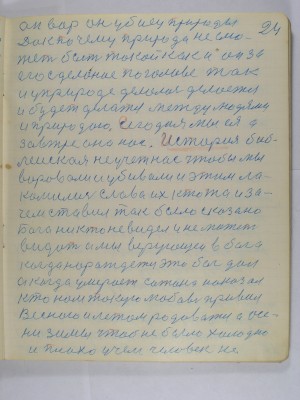 24
он вор он убиец природы
Вот почему природа не смо-
жет быть такой как и он за
его сделаное по голове так
и у природе делался делается
и будет делать между людями
и природою. Сегодня мы ея а
завтра она нас. История биб-
лейская не учет нас чтобы мы
воровали и убивали и этим ла-
комились слова их кто то и за-
чем ставил так было сказано
Бога никто не видел и не может
видать и мы верующие в бога
когда нараждется это бог дал
а когда умирает сатана показал
кто нам такую любовь привил
Весною и летом радовать а осе-
ни зимы чтоб не было холодно
и плохо и чем человек не